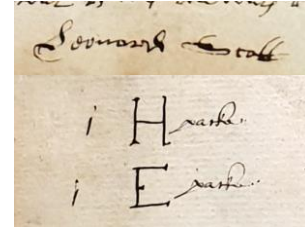 Leonard Scott
j H parke
j E parke